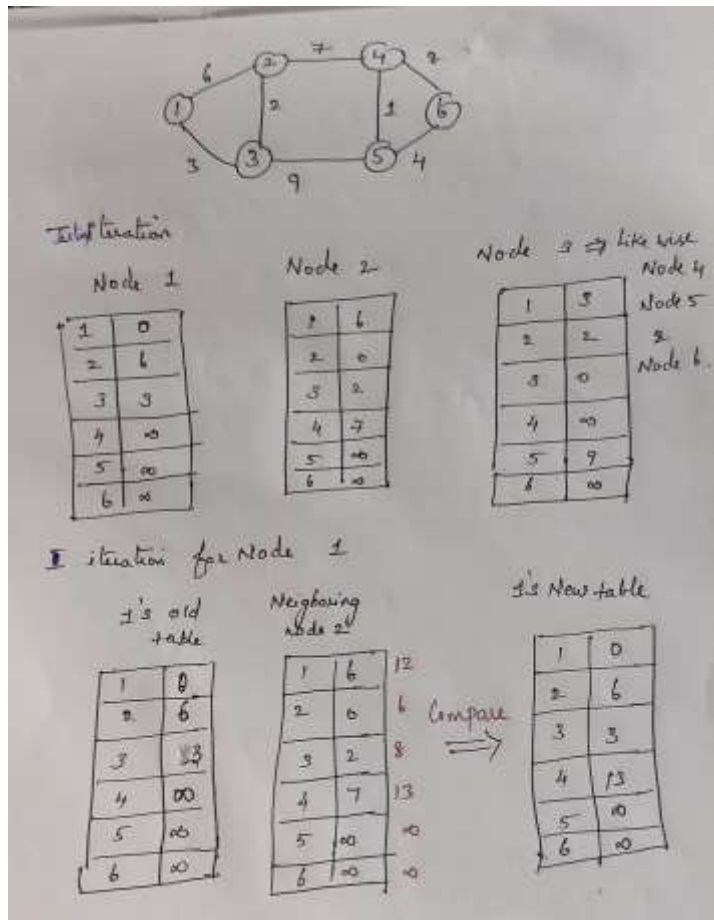 6 2 7 4 2
1 2 1 6
3 3 9 5 4
Iteration
Node 1
1 0
2 6
3 3
4 ∞
5 ∞
6 ∞
Node 2
1 6
2 0
3 2
4 7
5 ∞
6 ∞
Node 3 ⇒ Like wise
Node 4
Node 5
&
Node 6.
1 3
2 2
3 0
4 ∞
5 9
6 ∞
I iteration for Node 1
1's old
table
1 0
2 6
3 3
4 ∞
5 ∞
6 ∞
Neigboring
node 2
1 6 12
2 0 6
3 2 8
4 7 13
5 ∞ ∞
6 ∞ ∞
Compare
⇒
1's New table
1 0
2 6
3 3
4 13
5 ∞
6 ∞